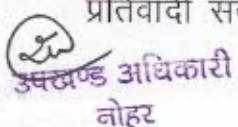 प्रतिवादी
उपखण्ड अधिकारी
नोहर